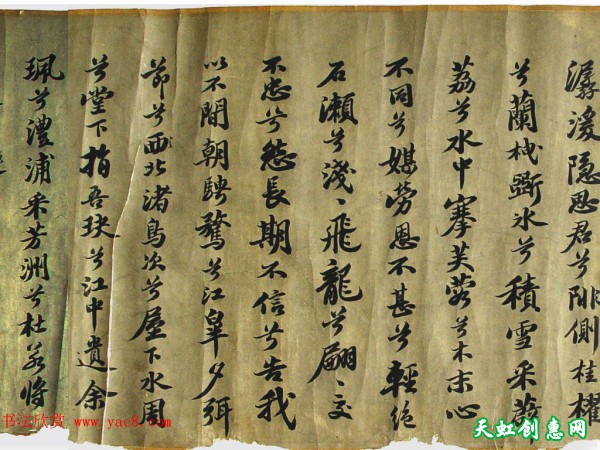 潺湲隐思君兮陫側桂櫂
兮蘭枻斲冰兮積雪采薜
荔兮水中搴芙蓉兮木末心
不同兮媒勞恩不甚兮輕絕
石瀨兮淺〻飛龍兮翩〻交
不忠兮怨長期不信兮告我
以不閒朝騁騖兮江皋夕弭
節兮西北渚鳥次兮屋下水周
兮堂下捐吾玦兮江中遺余
珮兮澧浦采芳洲兮杜若將
书法欣赏 www.yac8.com
天虹创惠网